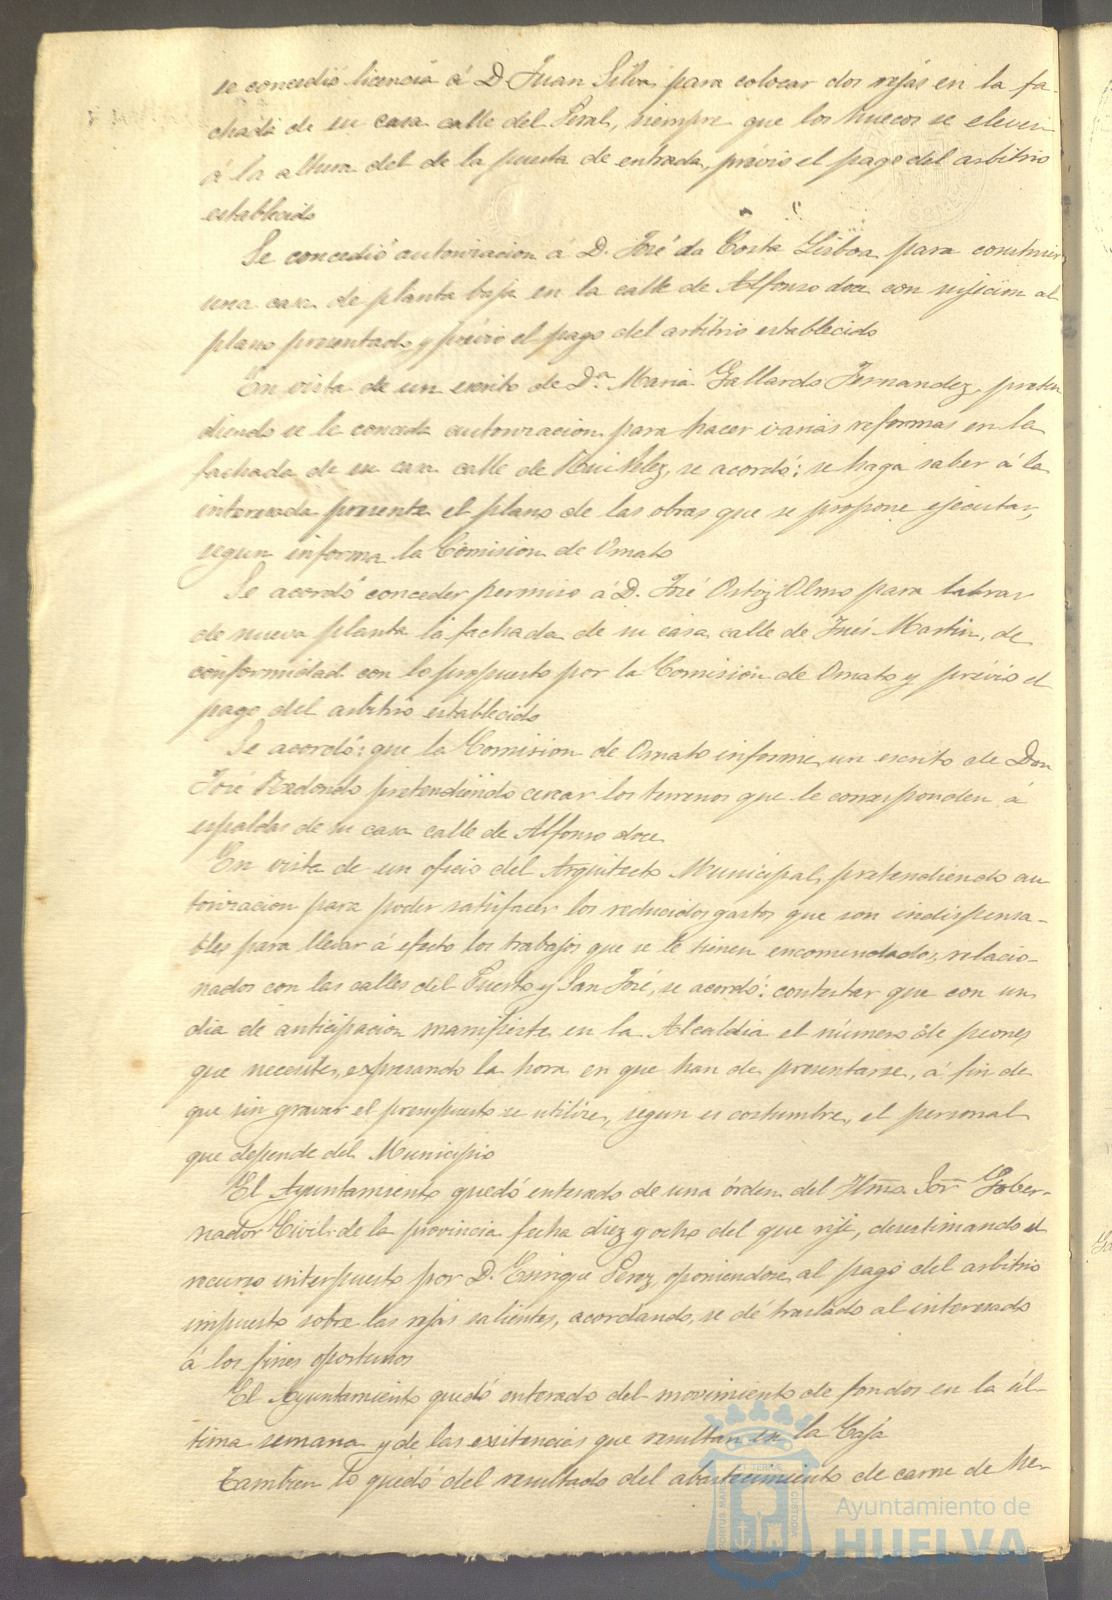 se concedió licencia á D. Juan Silva, para colocar dos rejas en la fa-
chada de su casa calle del Peral, siempre que los huecos se eleven
á la altura del de la puerta de entrada, prévio el pago del arbitrio
establecido
Se concedió autorizacion á D. José da Costa Lisboa para construir
una casa de planta baja en la calle de Alfonso doce con sujecion al
plano presentado y prévio el pago del arbitrio establecido
En vista de un escrito de D.ª Maria Gallardo Fernandez, preten
diendo se le conceda autorizacion para hacer varias reformas en la
fachada de su casa calle de Rui Velez, se acordó: se haga saber á la
interesada presente el plano de las obras que se propone ejecutar,
segun informa la Comision de Ornato
Se acordó conceder permiso á D. José Ortiz Olmo para labrar
de nueva planta la fachada de su casa calle de Inés Martin, de
conformidad con lo propuesto por la Comision de Ornato y prévio el
pago del arbitrio establecido
Se acordó: que la Comision de Ornato informe un escrito de Don
José Redondo pretendiendo cercar los terrenos que le corresponden á
espaldas de su casa calle de Alfonso doce
En vista de un oficio del Arquitecto Municipal, pretendiendo au
torizacion para poder satisfacer los reducidos gastos que son indispensa-
bles para llevar á efecto los trabajos que se le tienen encomendados, relacio-
nados con las calles del Puerto y San José, se acordó: contestar que con un
dia de anticipacion manifieste en la Alcaldia el número de peones
que necesite, expresando la hora en que han de presentarse, á fin de
que sin gravar el presupuesto se utilice, segun es costumbre, el personal
que depende del Municipio
El Ayuntamiento quedó enterado de una órden del Ilmo. Sor. Gober-
nador Civil de la provincia fecha diez y ocho del que rije, desestimando el
recurso interpuesto por D. Enrique Perez, oponiendose al pago del arbitrio
impuesto sobre las rejas salientes, acordando, se dé traslado al interesado
á los fines oportunos
El Ayuntamiento quedó enterado del movimiento de fondos en la úl-
tima semana y de las existencias que resultan en la Caja
Tambien lo quedó del resultado del abastecimiento de carne de he-
Ayuntamiento de
HUELVA